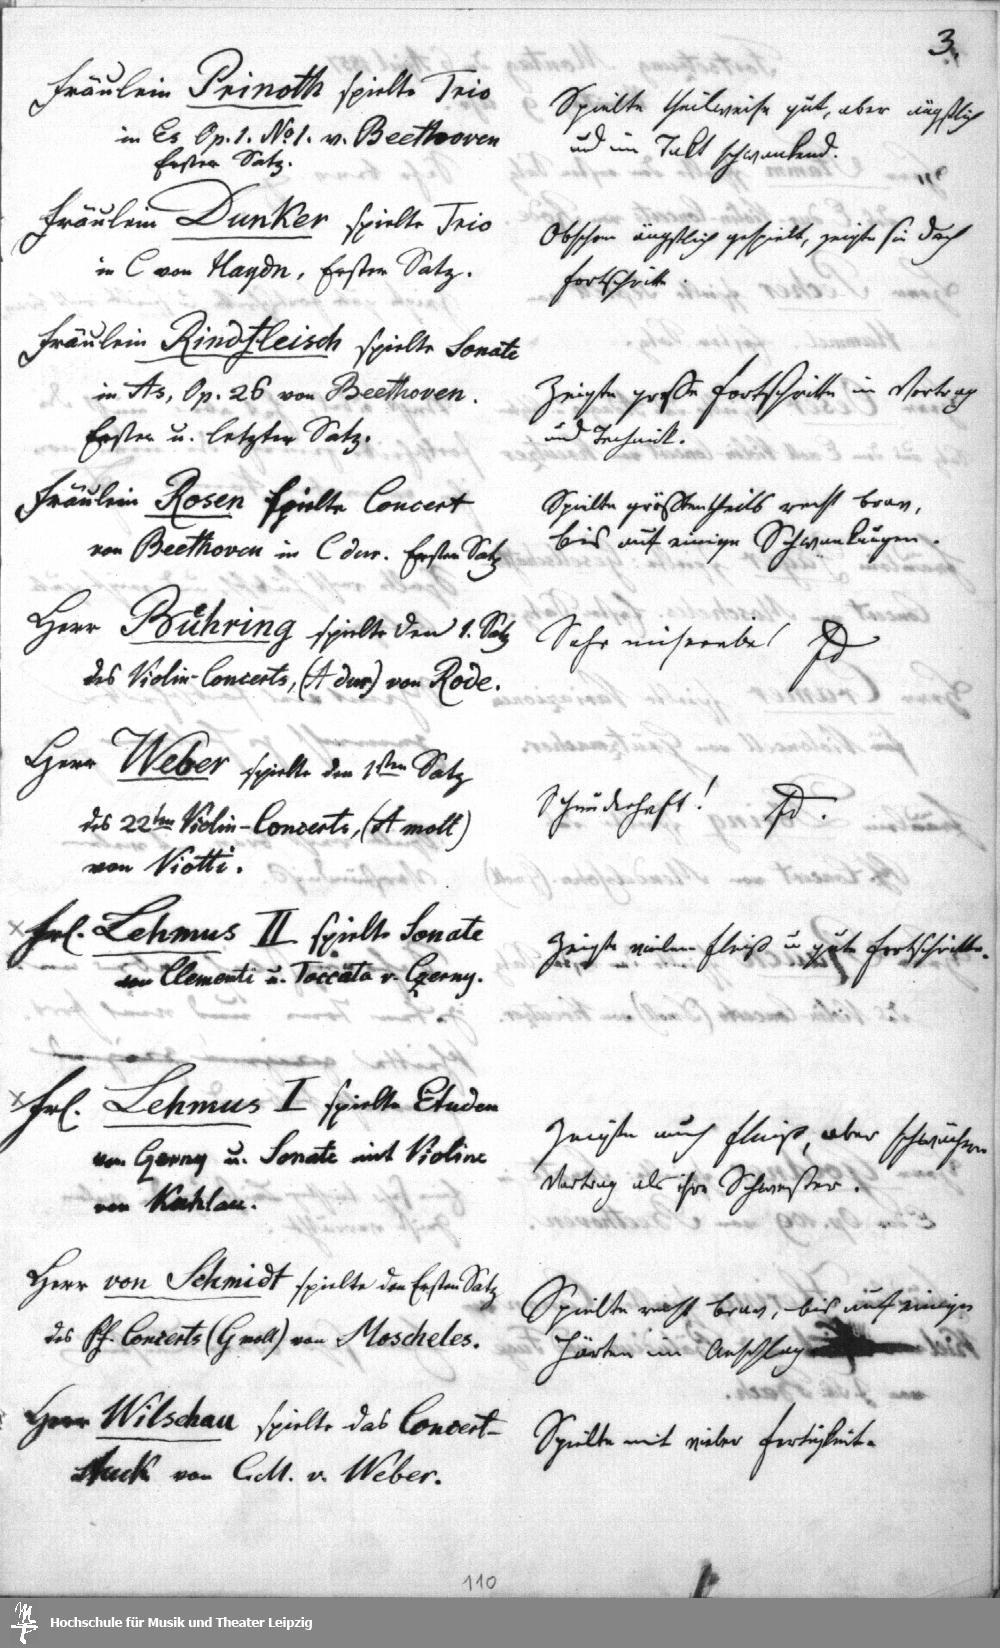 3.
Fräulein Prinoth spielte Trio
in Es Op. 1. No 1. v. Beethoven
Erster Satz.
Spielte theilweise gut, aber ängstlich
und im Takt schwankend.
Fräulein Dunker spielte Trio
in C von Haydn, Erster Satz.
Obschon ängstlich gespielt, zeigte sie doch
Fortschritte.
Fräulein Rindfleisch spielte Sonate
in As, Op. 26 von Beethoven.
Erster u. letzter Satz.
Zeigte grosse Fortschritte im Vortrag
und Technik.
Fräulein Rosen spielte Concert
von Beethoven in C dur. Erster Satz
Spielte grösstentheils recht brav,
bis auf einige Schwankungen.
Herr Bühring spielte den 1. Satz
des Violin-Concerts, (A dur) von Rode.
Sehr miserabel!
Herr Weber spielte den 1sten Satz
des 22ten Violin-Concerts, (A moll)
von Viotti.
Schauderhaft!
Frl. Lehmus II spielte Sonate
von Clementi u. Toccata v. Czerny.
Zeigte vielen Fleiß u gute Fortschritte.
Frl. Lehmus I spielte Etuden
von Czerny u. Sonate mit Violine
von Kuhlau.
Zeigte auch Fleiß, aber schwächeren
Vortrag als ihre Schwester.
Herr von Schmidt spielte den Ersten Satz
des Pf. Concerts (G moll) von Moscheles.
Spielte recht brav, bis auf einige
Härten im Anschlag
Herr Wilschau spielte das Concert-
stück von C. M. v. Weber.
Spielte mit vieler Fertigkeit.
110
Hochschule für Musik und Theater Leipzig